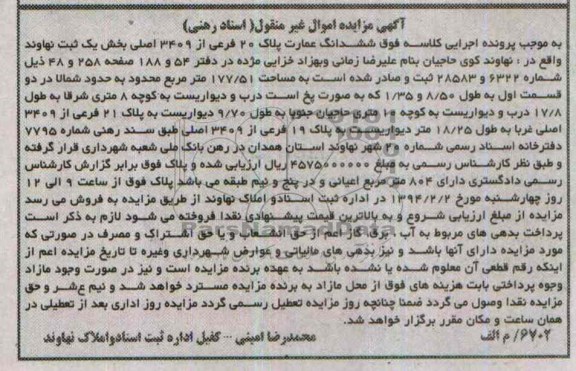 آگهی مزایده اموال غیر منقول( اسناد رهنی)
به موجب پرونده اجرایی کلاسه فوق ششدانگ عمارت پلاک ۲۰ فرعی از ۳۴۰۹ اصلی بخش یک ثبت نهاوند
واقع در : نهاوند کوی حاجیان بنام علیرضا زمانی وبهزاد خزایی مژده در دفتر ۵۴ و ۱۸۸ صفحه ۲۵۸ و ۴۸ ذیل
شماره ۶۳۲۲ و ۲۸۵۸۳ ثبت و صادر شده است به مساحت ۱۷۷/۵۱ متر مربع محدود به حدود شمالا در دو
قسمت اول به طول ۸/۵۰ و ۱/۳۵ که به صورت پخ است درب و دیواریست به کوچه ۸ متری شرقا به طول
۱۷/۸ درب و دیواریست به کوچه متری حاجیان جنوبا به طول ۹/۷۰ دیواریست به پلاک ۲۱ فرعی از ۳۴۰۹
اصلی غربا به طول ۱۸/۲۵ متر دیواریست به پلاک ۱۹ فرعی از ۳۴۰۹ اصلی طبق سند رهنی شماره ۷۷۹۵
دفترخانه اسناد رسمی شماره ۲۰ شهر نهاوند استان همدان در رهن بانک ملی شعبه شهرداری قرار گرفته
و طبق نظر کارشناس رسمی به مبلغ ۴۵۷۵۰۰۰۰۰۰ ریال ارزیابی شده و پلاک فوق برابر گزارش کارشناس
رسمی دادگستری دارای ۸۰۴ متر مربع اعیانی و در پنج و نیم طبقه می باشد پلاک فوق از ساعت ۹ الی ۱۲
روز چهارشنبه مورخ ۱۳۹۴/۲/۲ در اداره ثبت اسناد و املاک نهاوند از طریق مزایده به فروش می رسد
مزایده از مبلغ ارزیابی شروع و به بالاترین قیمت پیشنهادی نقدا فروخته می شود لازم به ذکر است
پرداخت بدهی های مربوط به آب ، برق، گاز اعم از حق انشعاب و یا حق اشتراک و مصرف در صورتی که
مورد مزایده دارای آنها باشد و نیز بدهی های مالیاتی و عوارض شهرداری وغیره تا تاریخ مزایده اعم از
اینکه رقم قطعی آن معلوم شده یا نشده باشد به عهده برنده مزایده است و نیز در صورت وجود مازاد
وجوه پرداختی بابت هزینه های فوق از محل مازاد به برنده مزایده مسترد خواهد شد و نیم عشر و حق
مزایده نقدا وصول می گردد ضمنا چنانچه روز مزایده تعطیل رسمی گردد مزایده روز اداری بعد از تعطیلی در
همان ساعت و مکان مقرر برگزار خواهد شد.
۶۷۰۲/ م الف محمدرضا امینی --- کفیل اداره ثبت اسناد واملاک نهاوند
ParsNamadData